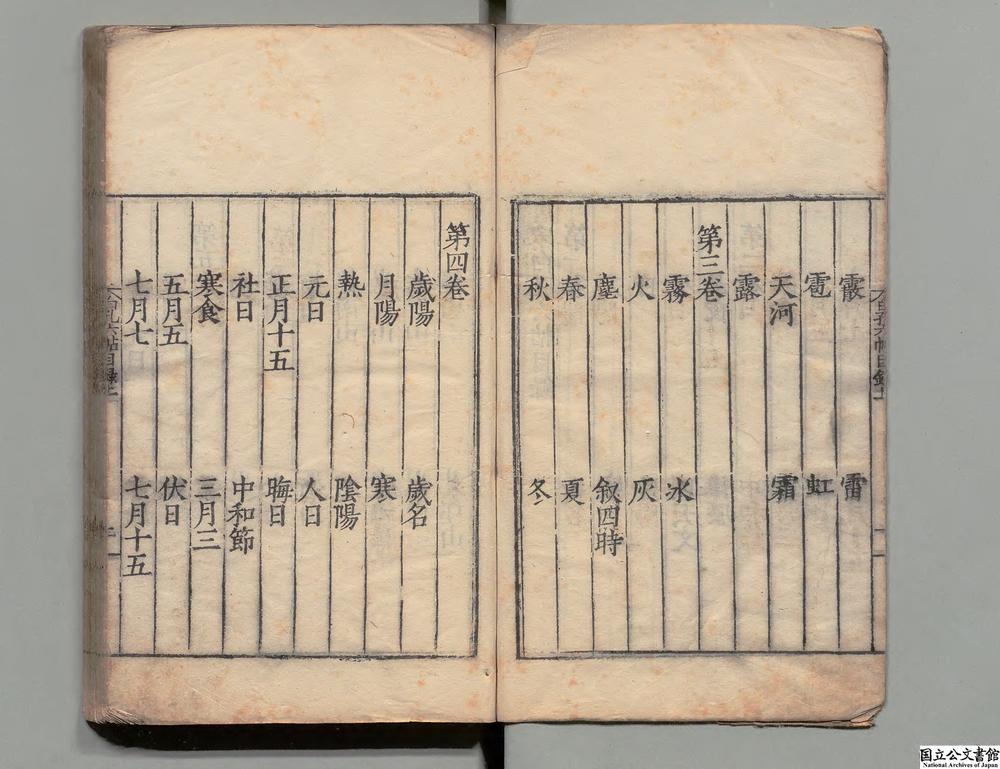 霰　雷
雹　虹
天河　霜
露
第三卷
霧　氷
火　灰
塵　叙四時
春　夏
秋　冬
第四卷
歲陽　歲名
月陽　寒
熱　陰陽
元日　人日
正月十五　晦日
社日　中和節
寒食　三月三
五月五　伏日
七月七　七月十五
国立公文書館
National Archives of Japan